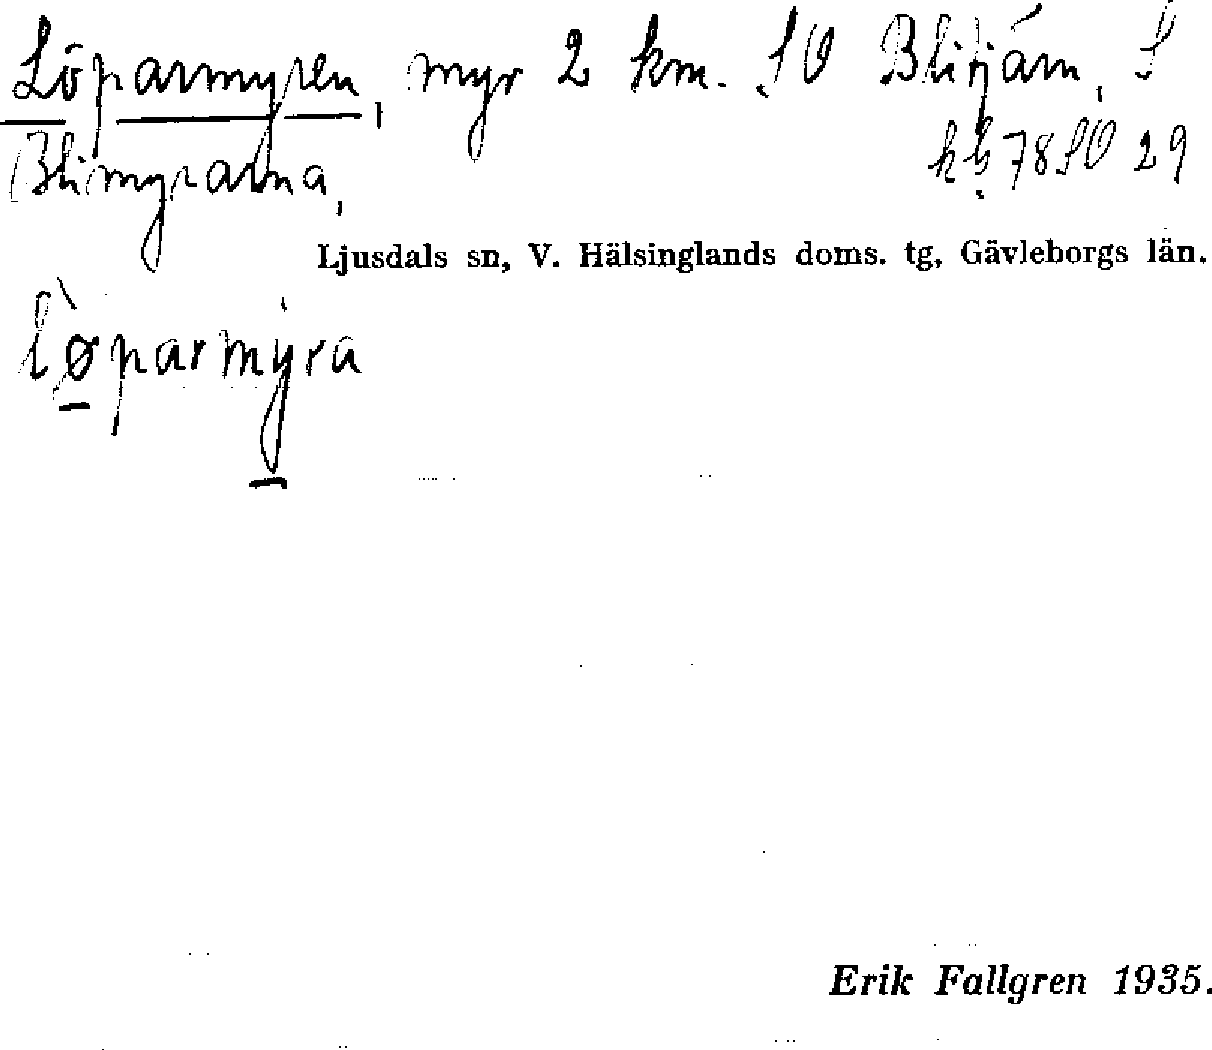 Löparmyren, myr 2 km. SO Blitjärn, S
Blimyrarna,
kb 78 SO 29
Ljusdals sn, V. Hälsinglands doms. tg, Gävleborgs län.
lø̀parmýra
Erik Fallgren 1935.